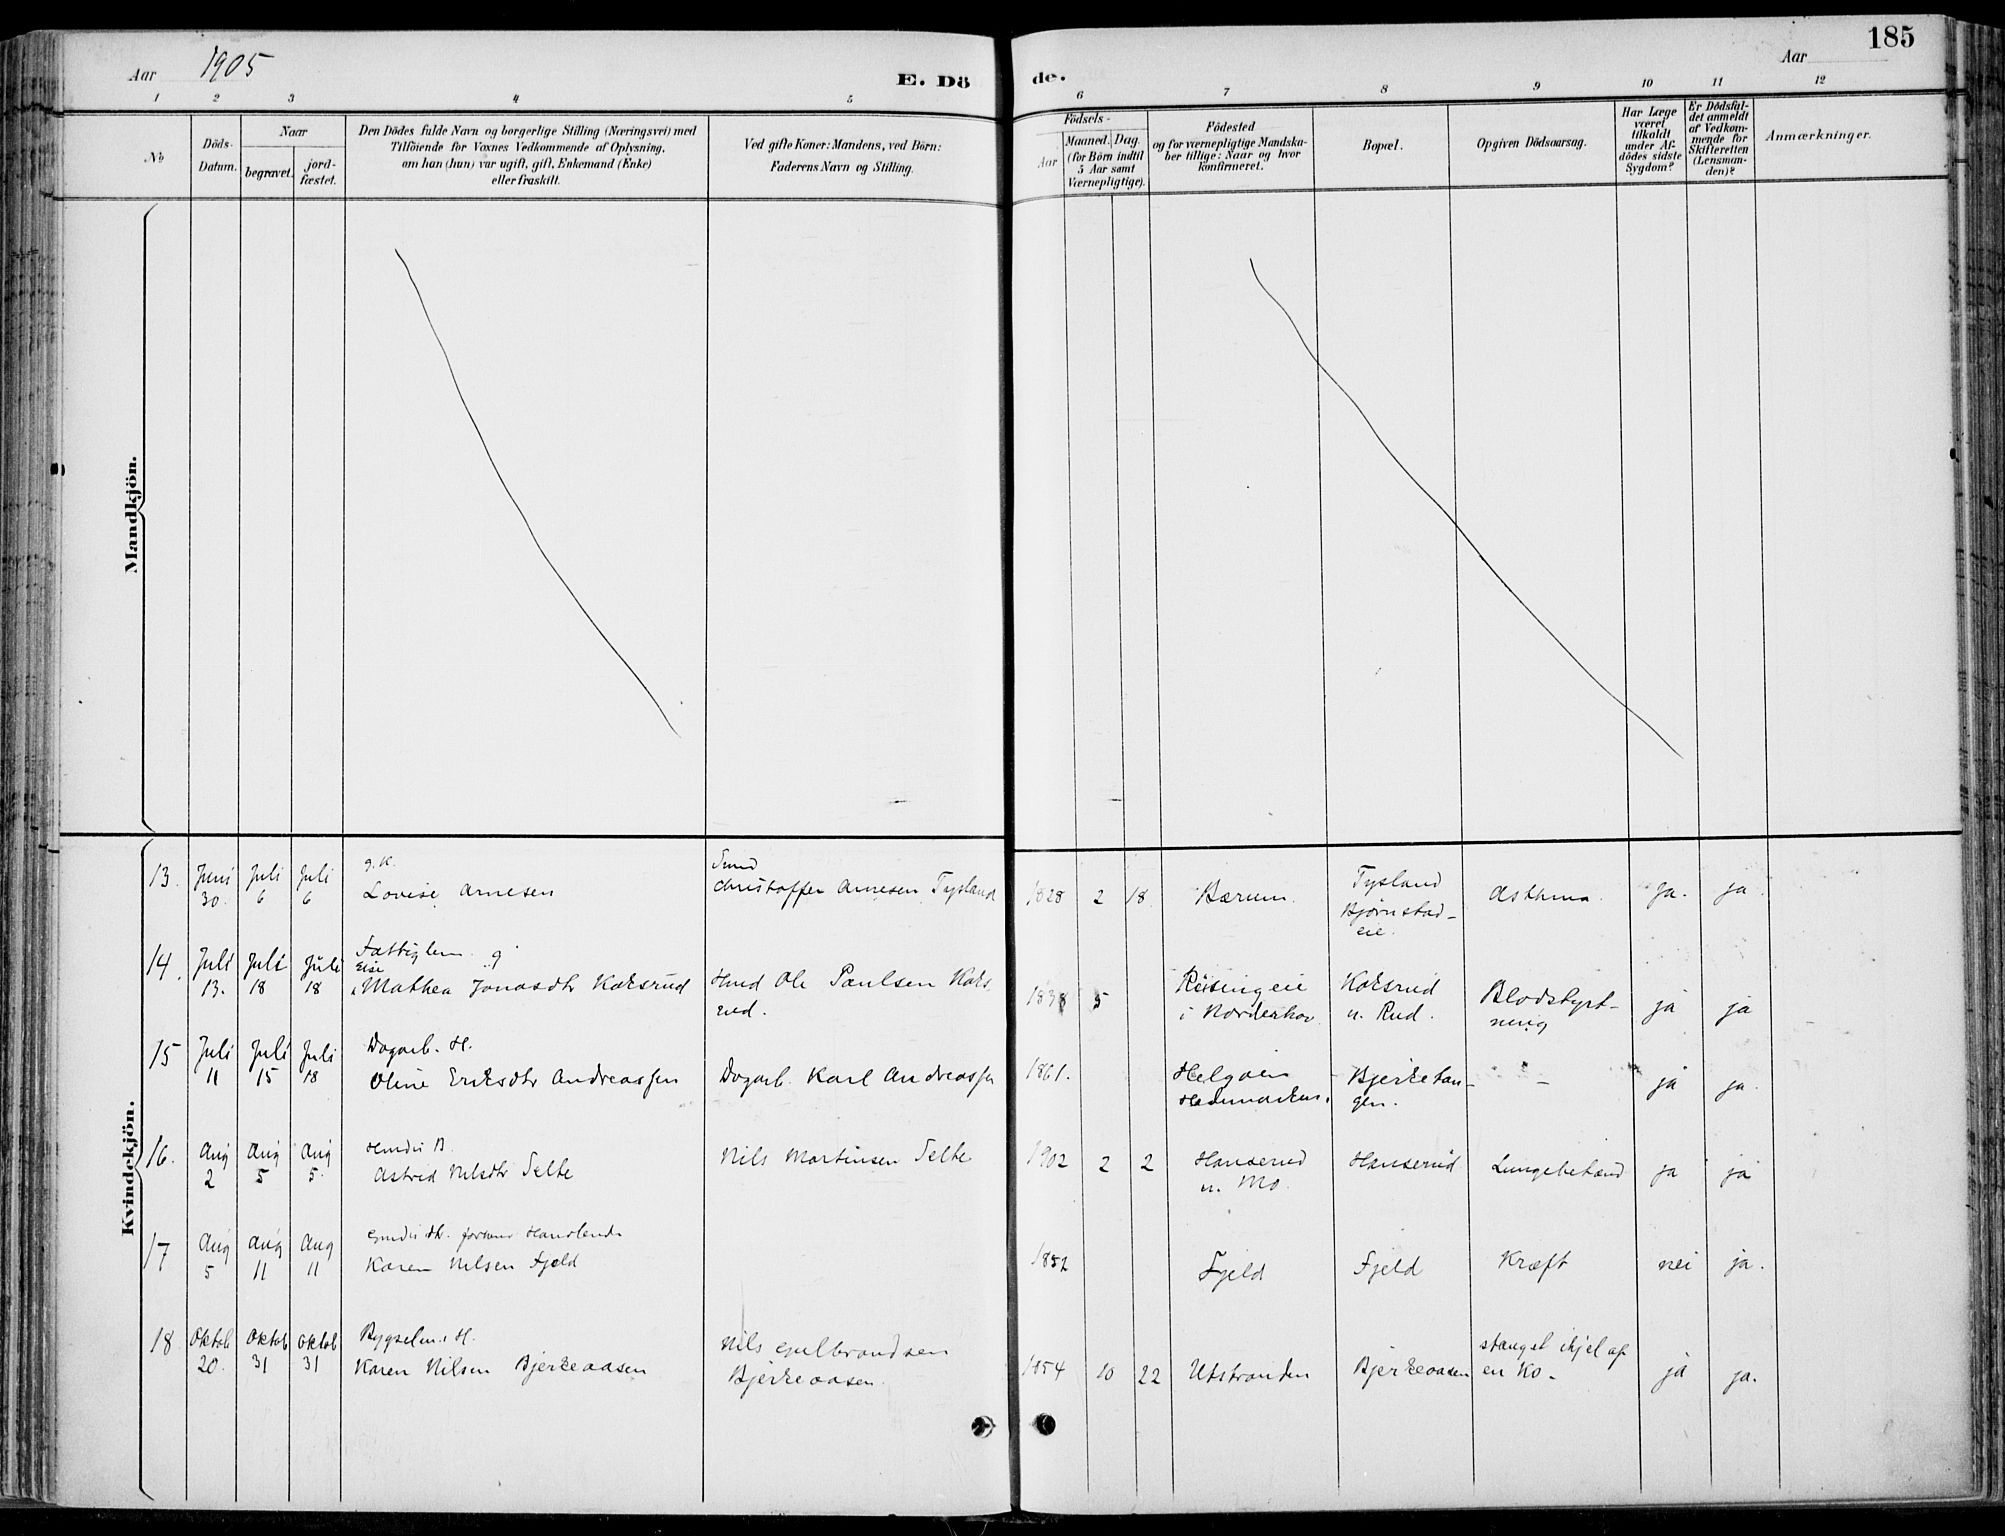 Aar 1905
E. Dö
de.
Aar
185
1 2 3 4 5 6 7 8 9 10 11 12
No
Döds-
Datum.
Naar
begravet.
jord-
fæstet.
Den Dödes fulde Navn og borgerlige Stilling (Næringsvei) med
Tilföiende for Voxnes Vedkommende af Oplysning,
om han (hun) var ugift, gift, Enkemand (Enke)
eller fraskilt.
Ved gifte Koner: Mandens, ved Börn:
Faderens Navn og Stilling.
Födsels-
Aar
Maaned. Dag.
(for Börn indtil
5 Aar samt
Værnepligtige).
Födested
og for værnepligtige Mandska-
ber tillige: Naar og hvor
konfirmeret.
Bopæl.
Opgiven Dödsaarsag.
Har Læge
været
tilkaldt
under Af-
dödes sidste
Sygdom?
Er Dödsfal-
det anmeldt
af Vedkom-
mende for
Skifteretten
(Lensman-
den)?
Anmærkninger.
Mandkjön.
Kvindekjön.
13. Juni 30. Juli 6 Juli 6
g. K.
Lovise Arnesen
Christoffer Arnesen Tysland
1828 2 18 Bærum.
Tysland
Bjørnstad-
eie.
Asthma. ja. ja.
14. Juli 13. Juli 18 Juli 18
Fattiglem g
Mathea Jonasdtr Kaksrud
Ole Paulsen Kaks
rud.
1838 5
i Norderhov
Kaksrud
u. Rud.
Blodstyrt-
ning
ja ja
15 Juli 11 Juli 15 Juli 18
Dagarb. H.
Oline Eriksdtr Andreassen
Dagarb. Karl Andreassen
1861.
Helgøen
Hedemarken.
Bjerketan-
gen.
" - ja ja.
16. Aug 2 Aug 5 Aug 5.
B.
Astrid Nilsdtr Telte
Nils Martinsen Telte
1902 2 2
Hanserud
u. Mo.
Hanserud Lungebetænd ja ja
17 Aug 5 Aug 11 Aug 11
Karen Nilsen Fjeld
1852 Fjeld Fjeld Kræft nei ja.
18 Oktob 20. Oktob 31 Oktob 31
H.
Karen Nilsen Bjerkeaasen
Nils Gulbrandsen
Bjerkeaasen.
1854 10 22 Utstranden Bjerkeaasen
stanget ihjel af
en Ko-
ja ja.